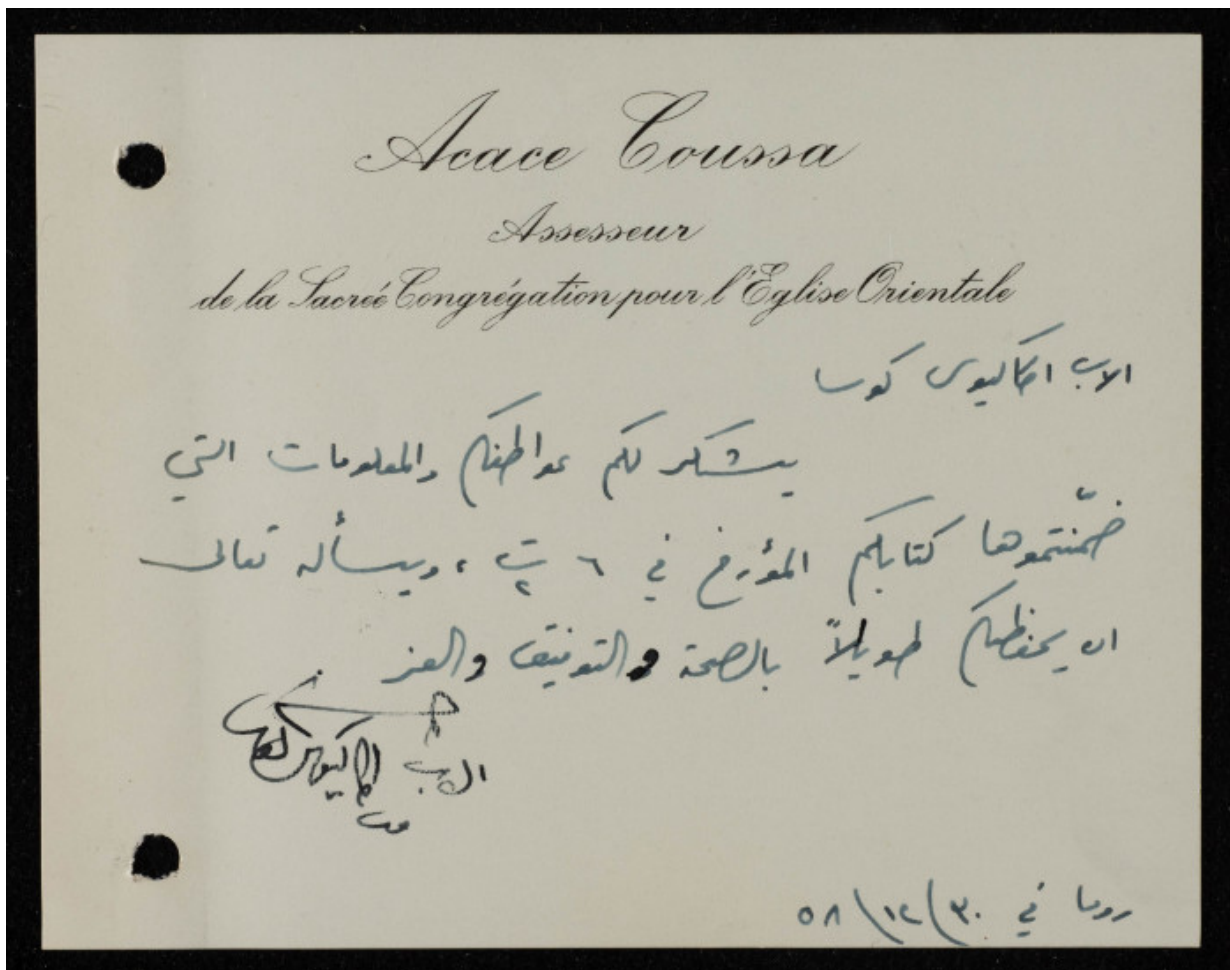 Acace Coussa
Assesseur
de la Sacrée Congrégation pour l'Eglise Orientale
الاب اكاكيوس كوسا
يشكر لكم عواطفكم والمعلومات التي
ضمّنتموها كتابكم المؤرخ في ٦ ت٢، ويسأله تعالى
ان يحفظكم طويلاً بالصحة والتوفيق والعز
الاب اكاكيوس كوسا
روما في ٣٠/١٢/٥٨